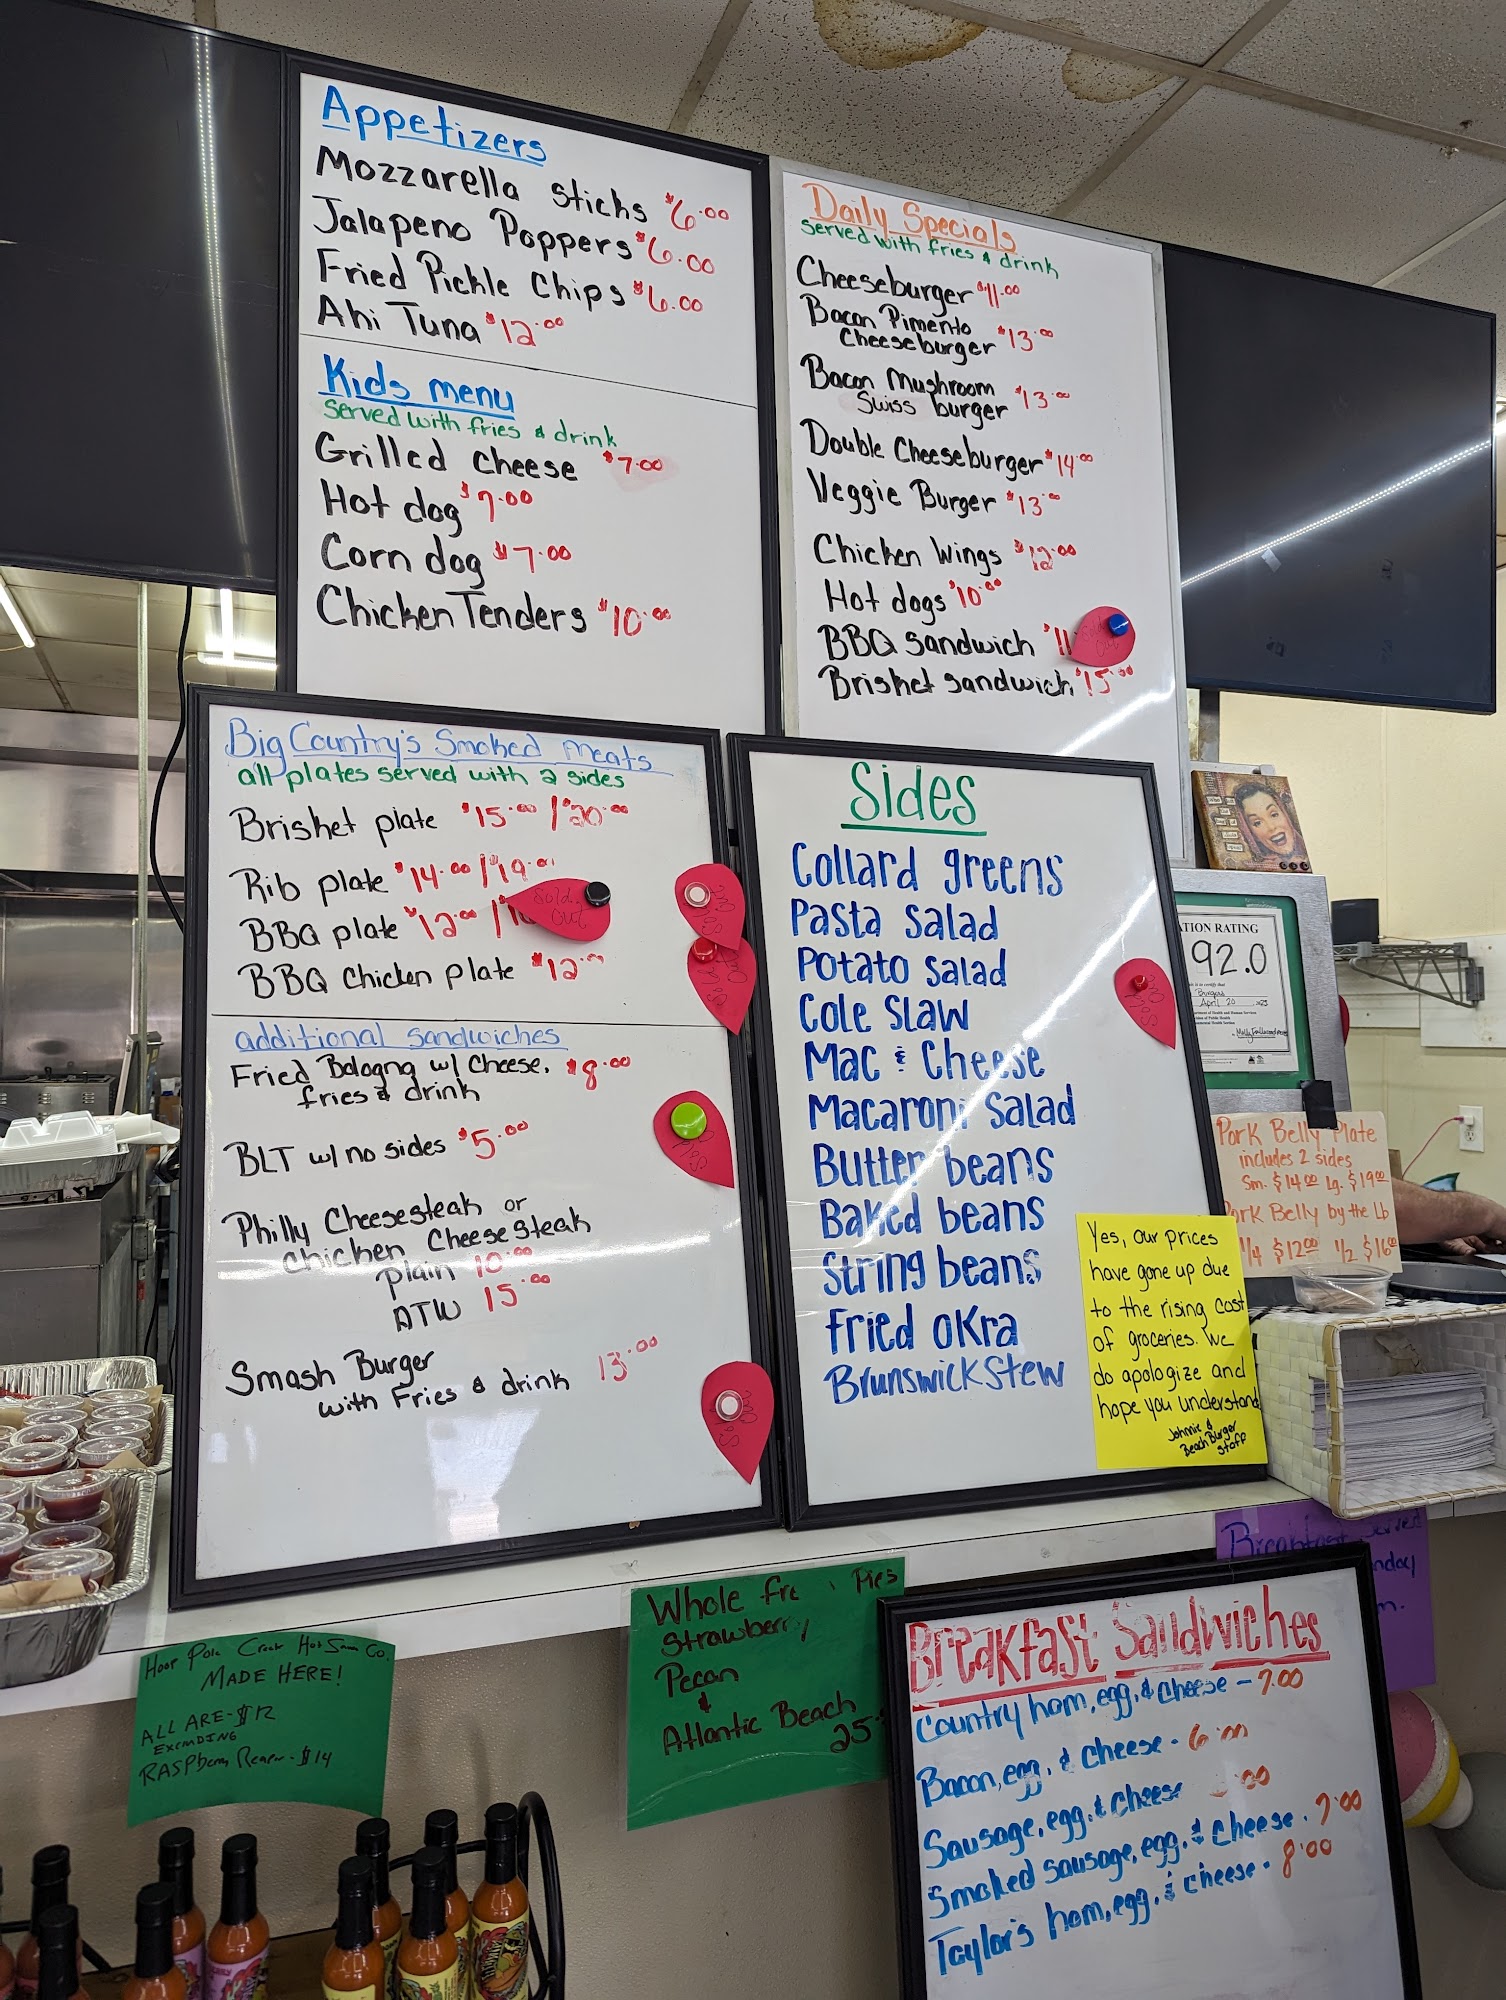 Appetizers
Mozzarella sticks $6.00
Jalapeno Poppers $6.00
Fried Pickle Chips $6.00
Ahi Tuna $12.00
Kids menu
served with fries & drink
Grilled cheese $7.00
Hot dog $7.00
Corn dog $7.00
Chicken Tenders $10.00
Daily Specials
served with fries & drink
Cheeseburger $11.00
Bacon Pimento
Cheeseburger $13.00
Bacon Mushroom
Swiss burger $13.00
Double Cheeseburger $14.00
Veggie Burger $13.00
Chicken Wings $12.00
Hot dogs $10.00
BBQ sandwich $11
Sold out
Brisket sandwich $15.00
Big Country's Smoked meats
all plates served with 2 sides
Brisket plate $15.00 / $20.00
Rib plate $14.00 / $19.00
Sold out
BBQ plate $12.00 /
BBQ Chicken plate $12.00
additional sandwiches
Fried Bologna w/ Cheese, $8.00
fries & drink
BLT w/ no sides $5.00
Philly Cheesesteak or
Chicken Cheesesteak
plain 10.00
ATW 15.00
Smash Burger
with Fries & drink 13.00
Sides
Collard greens
Pasta Salad
Potato Salad
Cole Slaw
Mac & Cheese
Macaroni Salad
Butter beans
Baked beans
String beans
Fried Okra
Brunswick Stew
Yes, our prices
have gone up due
to the rising cost
of groceries. We
do apologize and
hope you understand
Johnnie &
Beach Burger
staff
RATING
92.0
April 20
Pork Belly Plate
includes 2 sides
Sm. $14.00 Lg. $19.00
Pork Belly by the Lb
1/4 $12.00 1/2 $16.00
Hoop Pole Creek Hot Sauce Co.
MADE HERE!
ALL ARE - $12
EXCLUDING
RASPberry Reaper - $14
Whole Pies
Strawberry
Pecan
&
Atlantic Beach
25
Breakfast Served
Breakfast Sandwiches
Country ham, egg, & cheese - 7.00
Bacon, egg, & cheese - 6.00
Sausage, egg, & cheese .00
Smoked sausage, egg, & cheese - 7.00
Taylor's ham, egg, & cheese - 8.00